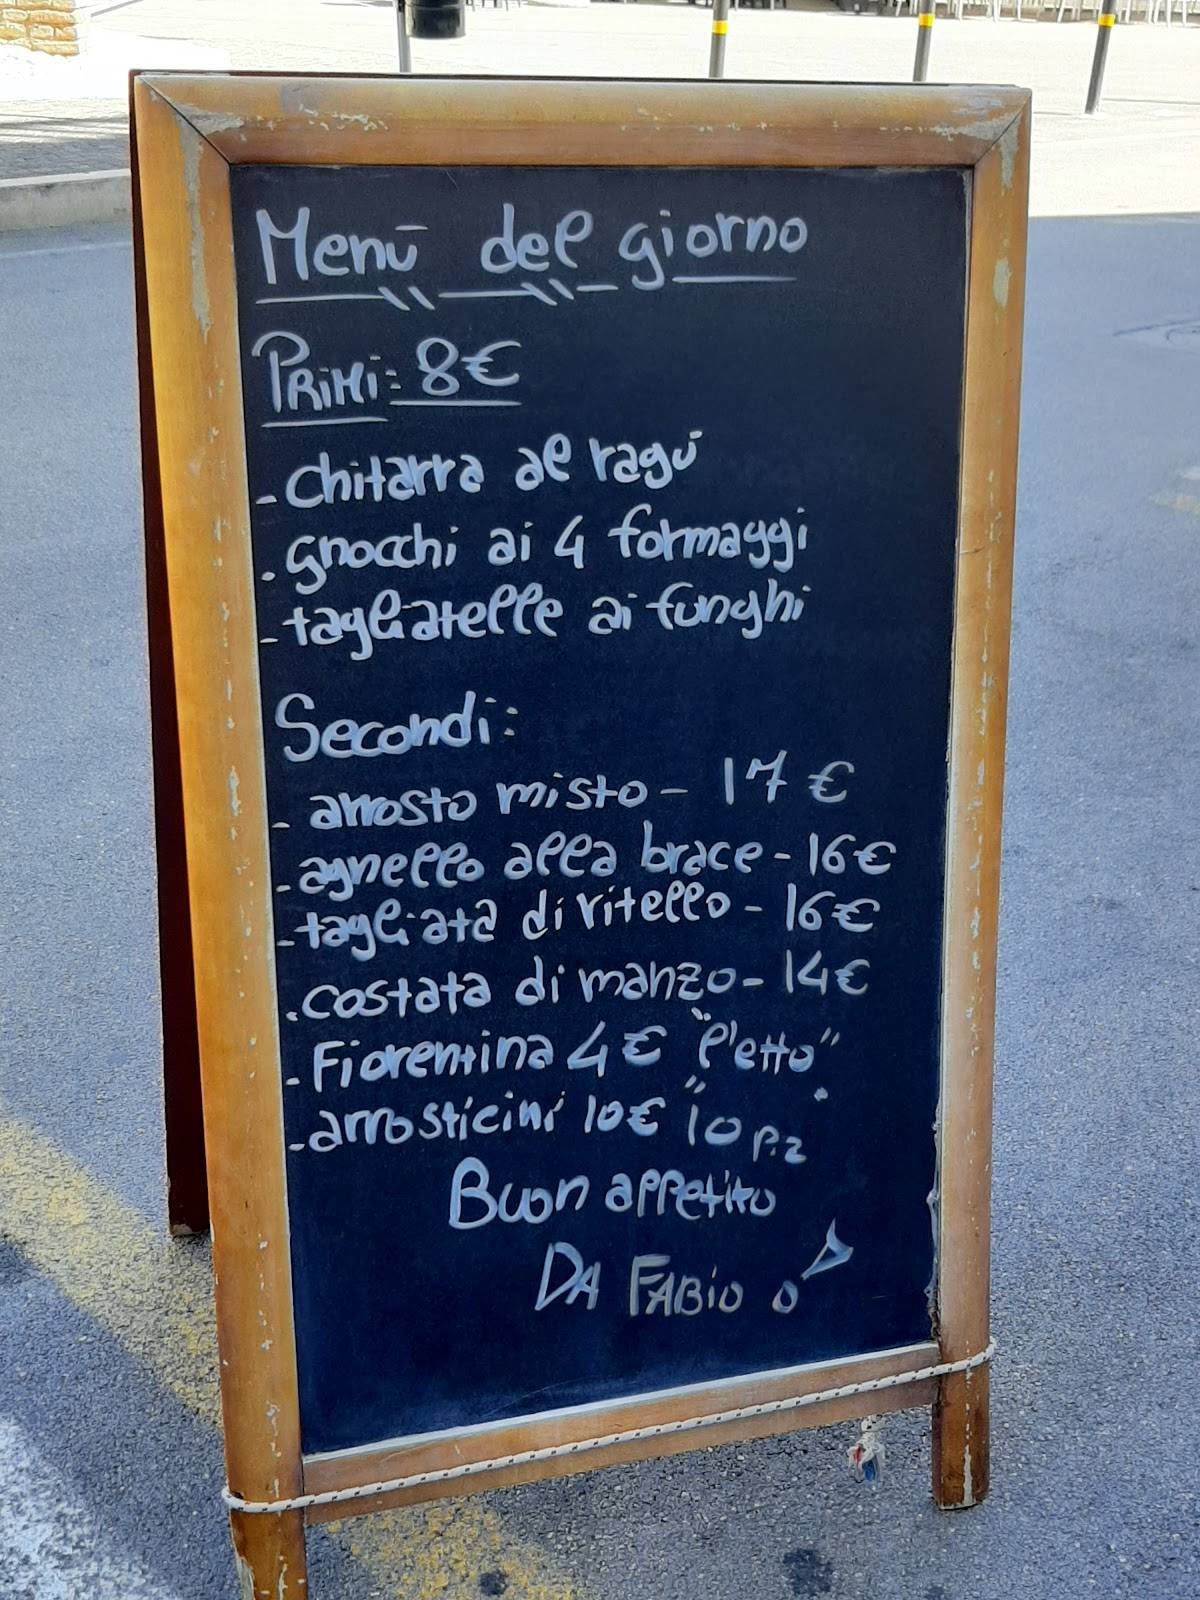 Menù del giorno
PRiMi: 8€
- chitarra al ragù
- gnocchi ai 4 formaggi
- tagliatelle ai funghi
Secondi:
- arrosto misto - 17 €
- agnello alla brace - 16€
- tagliata di vitello - 16€
- costata di manzo - 14€
- Fiorentina 4€ "l'etto"
- arrosticini 10€ "10 pz
Buon appetito
DA FABiO